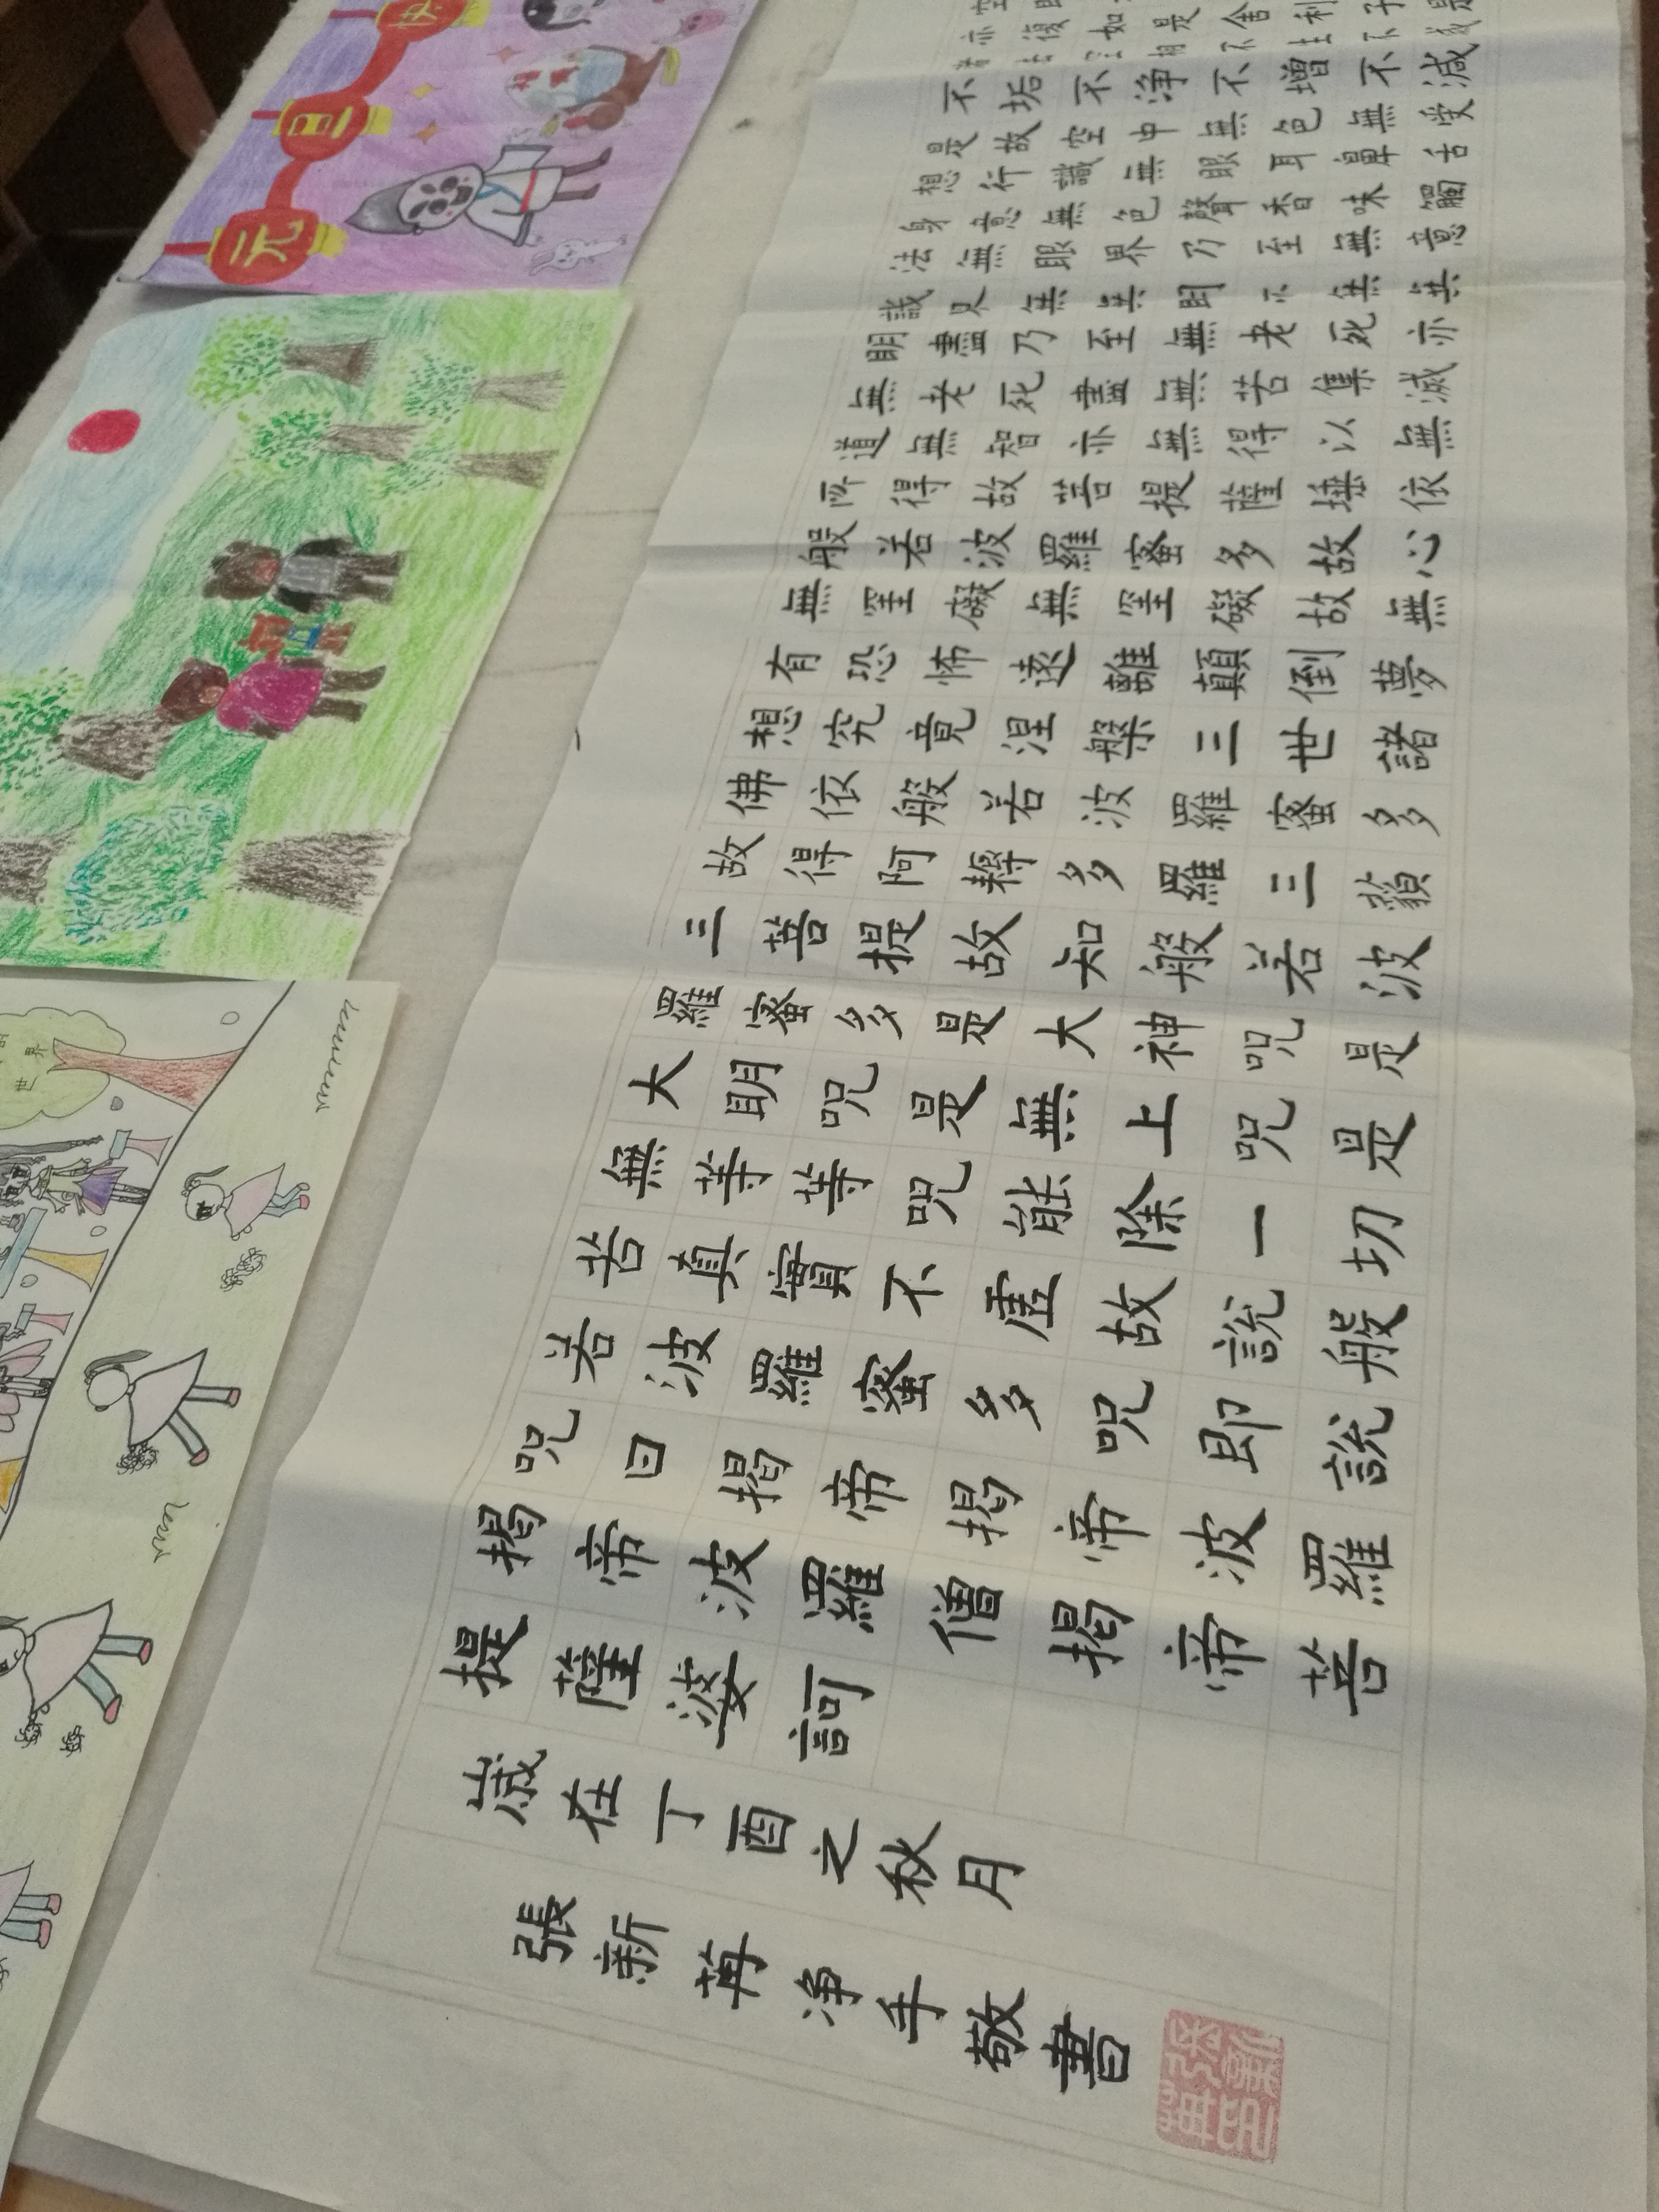 亦復如是舍利子是
不垢不净不增不減
是故空中無色無受
想行識無眼耳鼻舌
身意無色聲香味觸
法無眼界乃至無意
識界無無明亦無無
明盡乃至無老死亦
無老死盡無苦集滅
道無智亦無得以無
所得故菩提薩埵依
般若波羅蜜多故心
無罣礙無罣礙故無
有恐怖遠離顛倒夢
想究竟涅槃三世諸
佛依般若波羅蜜多
故得阿耨多羅三藐
三菩提故知般若波
羅蜜多是大神咒是
大明咒是無上咒是
無等等咒能除一切
苦真實不虛故說般
若波羅蜜多咒即說
咒曰揭帝揭帝波羅
揭帝波羅僧揭帝菩
提薩婆訶
歲在丁酉之秋月
張新苒净手敬書
元旦快
世界